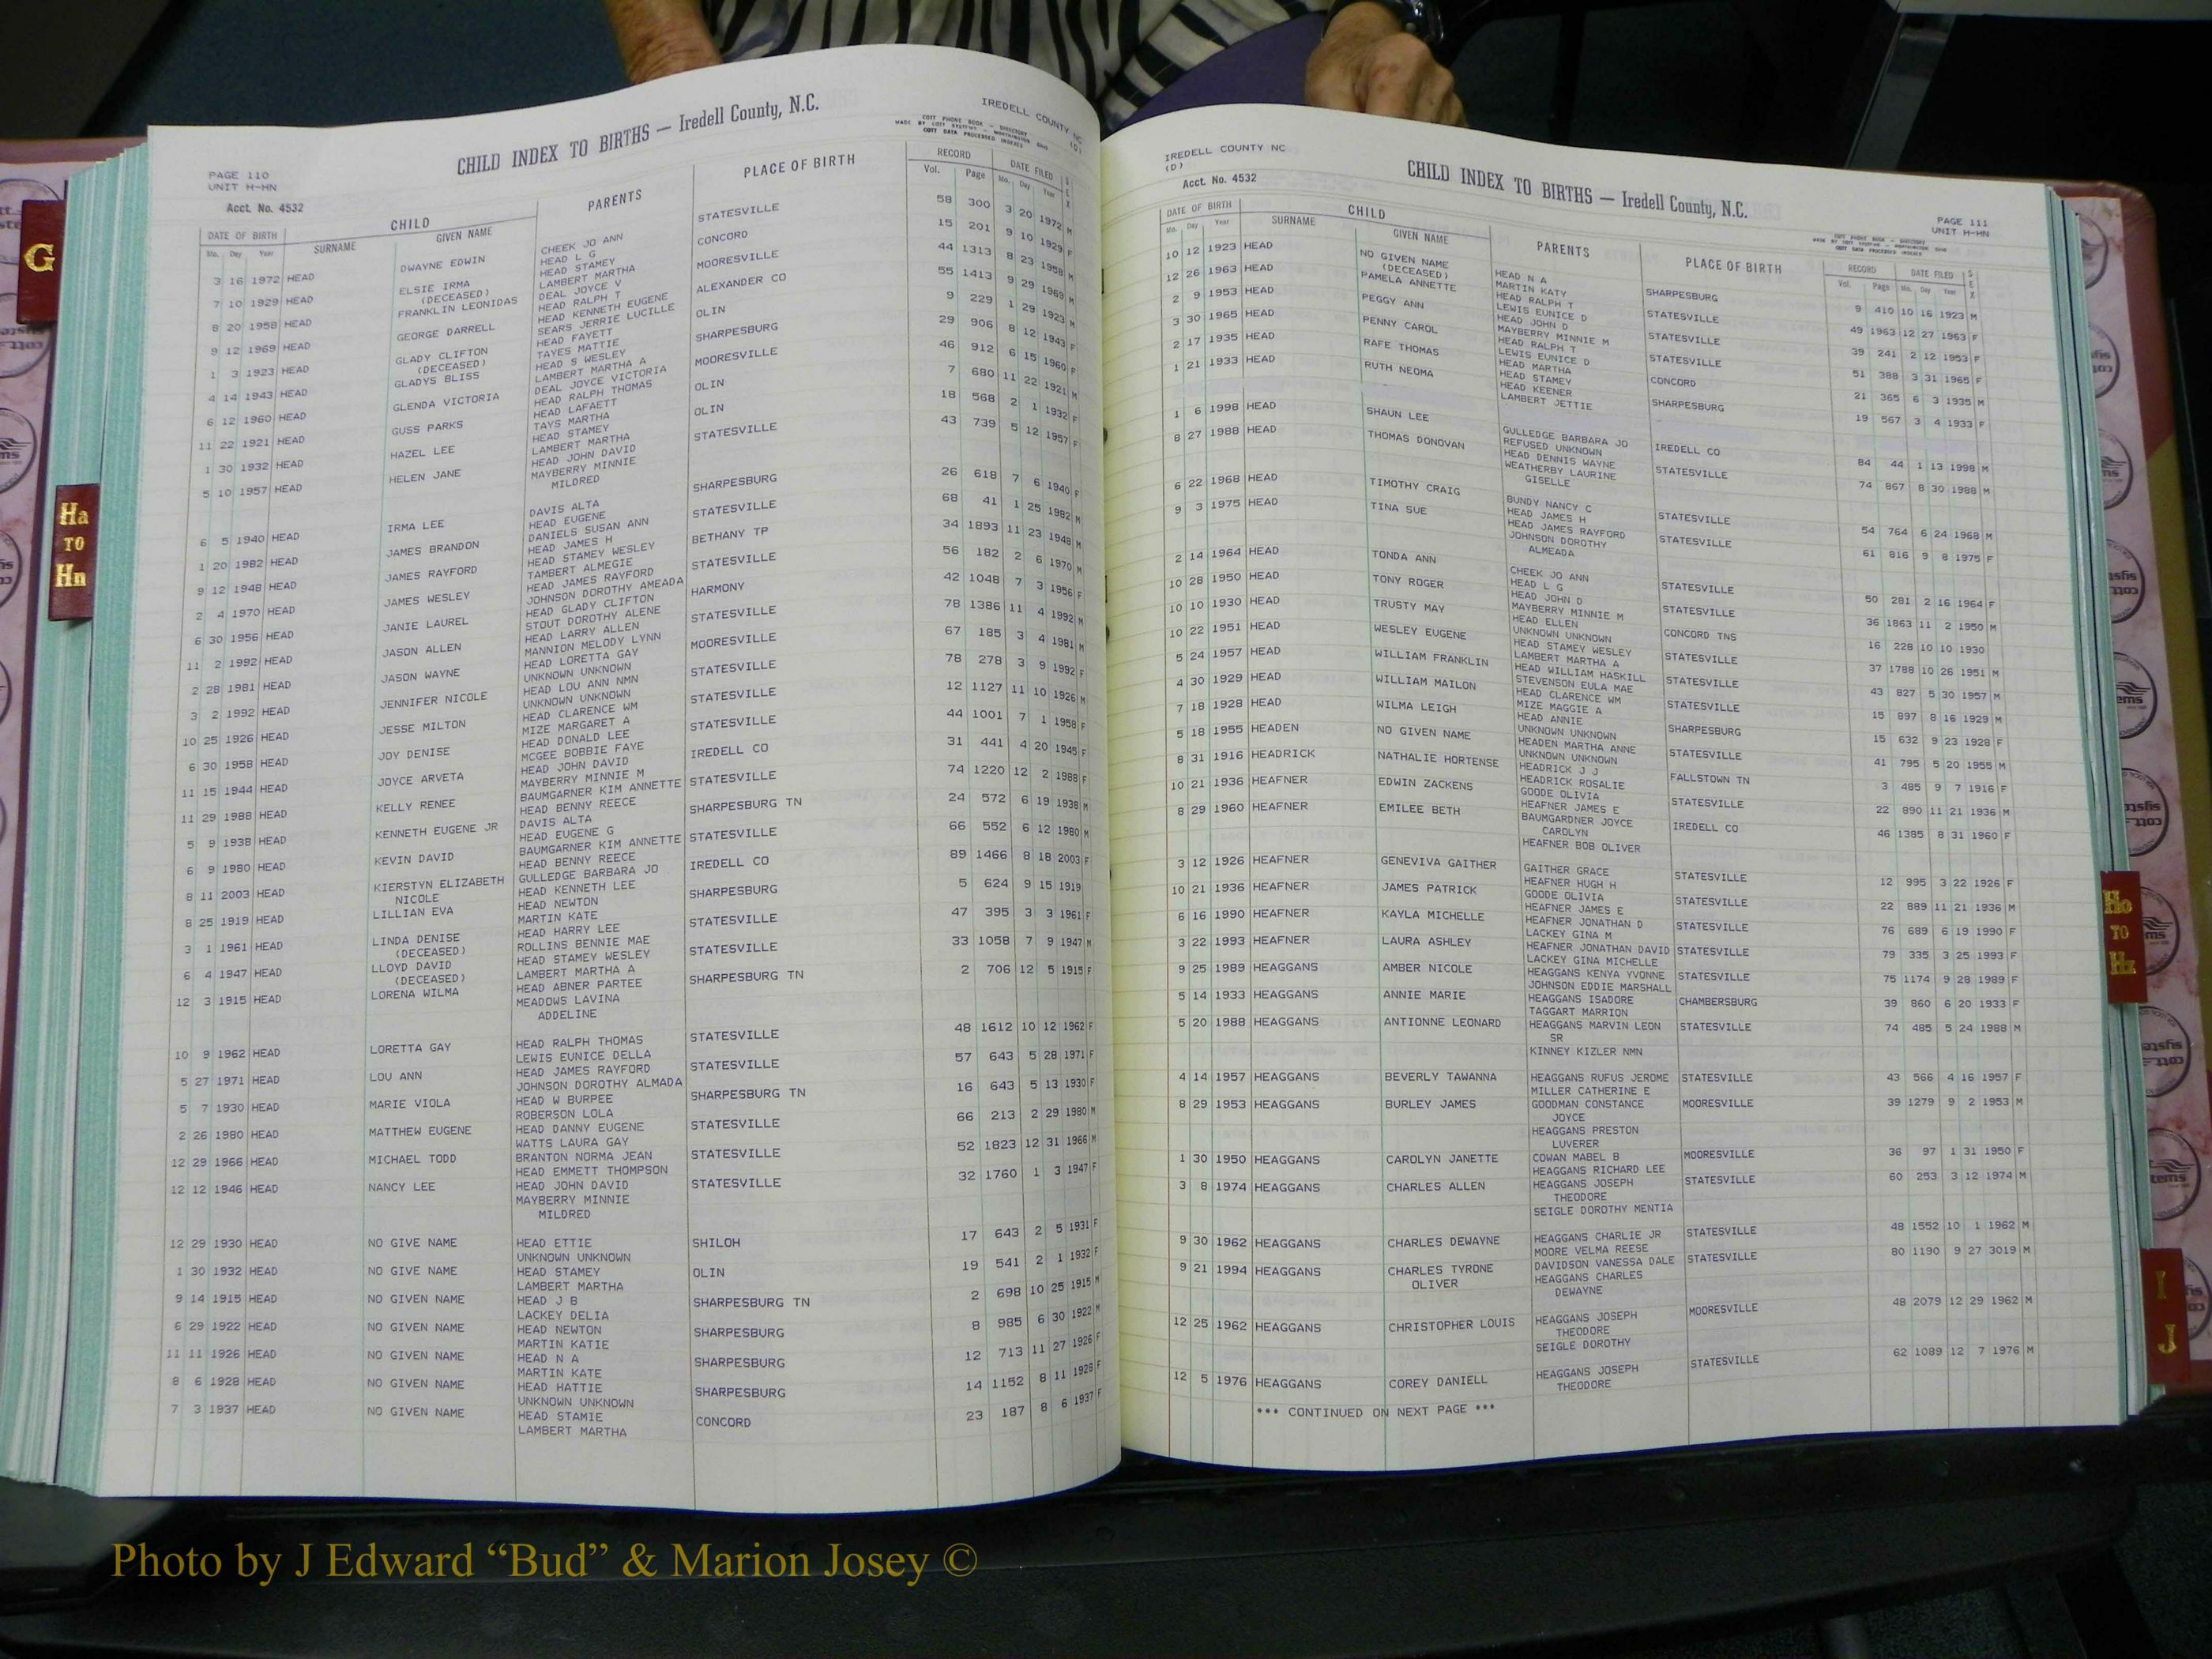 CHILD INDEX TO BIRTHS — Iredell County, N.C.
IREDELL COUNTY NC
(D)
COTT PHONE BOOK - DIRECTORY
MADE BY COTT SYSTEMS - WORTHINGTON OHIO
COTT DATA PROCESSED INDEXES
PAGE 110
UNIT H-HN
Acct. No. 4532
DATE OF BIRTH CHILD PARENTS PLACE OF BIRTH RECORD DATE FILED SEX
Mo. Day Year SURNAME GIVEN NAME Vol. Page Mo. Day Year
3 16 1972 HEAD DWAYNE EDWIN CHEEK JO ANN STATESVILLE 58 300 3 20 1972 M
HEAD L G
7 10 1929 HEAD ELSIE IRMA HEAD STAMEY CONCORD 15 201 9 10 1929 F
(DECEASED) LAMBERT MARTHA
8 20 1958 HEAD FRANKLIN LEONIDAS DEAL JOYCE V MOORESVILLE 44 1313 8 23 1958 M
HEAD RALPH T
9 12 1969 HEAD GEORGE DARRELL HEAD KENNETH EUGENE ALEXANDER CO 55 1413 9 29 1969 M
SEARS JERRIE LUCILLE
1 3 1923 HEAD GLADY CLIFTON HEAD FAYETT OLIN 9 229 1 29 1923 M
(DECEASED) TAYES MATTIE
4 14 1943 HEAD GLADYS BLISS HEAD S WESLEY SHARPESBURG 29 906 8 12 1943 F
LAMBERT MARTHA A
6 12 1960 HEAD GLENDA VICTORIA DEAL JOYCE VICTORIA MOORESVILLE 46 912 6 15 1960 F
HEAD RALPH THOMAS
11 22 1921 HEAD GUSS PARKS HEAD LAFAETT OLIN 7 680 11 22 1921 M
TAYS MARTHA
1 30 1932 HEAD HAZEL LEE HEAD STAMEY OLIN 18 568 2 1 1932 F
LAMBERT MARTHA
5 10 1957 HEAD HELEN JANE HEAD JOHN DAVID STATESVILLE 43 739 5 12 1957 F
MAYBERRY MINNIE
MILDRED
6 5 1940 HEAD IRMA LEE DAVIS ALTA SHARPESBURG 26 618 7 6 1940 F
HEAD EUGENE
1 20 1982 HEAD JAMES BRANDON DANIELS SUSAN ANN STATESVILLE 68 41 1 25 1982 M
HEAD JAMES H
9 12 1948 HEAD JAMES RAYFORD HEAD STAMEY WESLEY BETHANY TP 34 1893 11 23 1948 M
TAMBERT ALMEGIE
2 4 1970 HEAD JAMES WESLEY HEAD JAMES RAYFORD STATESVILLE 56 182 2 6 1970 M
JOHNSON DOROTHY AMEADA
6 30 1956 HEAD JANIE LAUREL HEAD GLADY CLIFTON HARMONY 42 1048 7 3 1956 F
STOUT DOROTHY ALENE
11 2 1992 HEAD JASON ALLEN HEAD LARRY ALLEN STATESVILLE 78 1386 11 4 1992 M
MANNION MELODY LYNN
2 28 1981 HEAD JASON WAYNE HEAD LORETTA GAY MOORESVILLE 67 185 3 4 1981 M
UNKNOWN UNKNOWN
3 2 1992 HEAD JENNIFER NICOLE HEAD LOU ANN NMN STATESVILLE 78 278 3 9 1992 F
UNKNOWN UNKNOWN
10 25 1926 HEAD JESSE MILTON HEAD CLARENCE WM STATESVILLE 12 1127 11 10 1926 M
MIZE MARGARET A
6 30 1958 HEAD JOY DENISE HEAD DONALD LEE STATESVILLE 44 1001 7 1 1958 F
MCGEE BOBBIE FAYE
11 15 1944 HEAD JOYCE ARVETA HEAD JOHN DAVID IREDELL CO 31 441 4 20 1945 F
MAYBERRY MINNIE M
11 29 1988 HEAD KELLY RENEE BAUMGARNER KIM ANNETTE STATESVILLE 74 1220 12 2 1988 F
HEAD BENNY REECE
5 9 1938 HEAD KENNETH EUGENE JR DAVIS ALTA SHARPESBURG TN 24 572 6 19 1938 M
HEAD EUGENE G
6 9 1980 HEAD KEVIN DAVID BAUMGARNER KIM ANNETTE STATESVILLE 66 552 6 12 1980 M
HEAD BENNY REECE
8 11 2003 HEAD KIERSTYN ELIZABETH GULLEDGE BARBARA JO IREDELL CO 89 1466 8 18 2003 F
NICOLE HEAD KENNETH LEE
8 25 1919 HEAD LILLIAN EVA HEAD NEWTON SHARPESBURG 5 624 9 15 1919
MARTIN KATE
3 1 1961 HEAD LINDA DENISE HEAD HARRY LEE STATESVILLE 47 395 3 3 1961 F
(DECEASED) ROLLINS BENNIE MAE
6 4 1947 HEAD LLOYD DAVID HEAD STAMEY WESLEY STATESVILLE 33 1058 7 9 1947 M
(DECEASED) LAMBERT MARTHA A
12 3 1915 HEAD LORENA WILMA HEAD ABNER PARTEE SHARPESBURG TN 2 706 12 5 1915 F
MEADOWS LAVINA
ADDELINE
10 9 1962 HEAD LORETTA GAY HEAD RALPH THOMAS STATESVILLE 48 1612 10 12 1962 F
LEWIS EUNICE DELLA
5 27 1971 HEAD LOU ANN HEAD JAMES RAYFORD STATESVILLE 57 643 5 28 1971 F
JOHNSON DOROTHY ALMADA
5 7 1930 HEAD MARIE VIOLA HEAD W BURPEE SHARPESBURG TN 16 643 5 13 1930 F
ROBERSON LOLA
2 26 1980 HEAD MATTHEW EUGENE HEAD DANNY EUGENE STATESVILLE 66 213 2 29 1980 M
WATTS LAURA GAY
12 29 1966 HEAD MICHAEL TODD BRANTON NORMA JEAN STATESVILLE 52 1823 12 31 1966 M
HEAD EMMETT THOMPSON
12 12 1946 HEAD NANCY LEE HEAD JOHN DAVID STATESVILLE 32 1760 1 3 1947 F
MAYBERRY MINNIE
MILDRED
12 29 1930 HEAD NO GIVE NAME HEAD ETTIE SHILOH 17 643 2 5 1931 F
UNKNOWN UNKNOWN
1 30 1932 HEAD NO GIVE NAME HEAD STAMEY OLIN 19 541 2 1 1932 F
LAMBERT MARTHA
9 14 1915 HEAD NO GIVEN NAME HEAD J B SHARPESBURG TN 2 698 10 25 1915 M
LACKEY DELIA
6 29 1922 HEAD NO GIVEN NAME HEAD NEWTON SHARPESBURG 8 985 6 30 1922 M
MARTIN KATIE
11 11 1926 HEAD NO GIVEN NAME HEAD N A SHARPESBURG 12 713 11 27 1926 F
MARTIN KATE
8 6 1928 HEAD NO GIVEN NAME HEAD HATTIE SHARPESBURG 14 1152 8 11 1928 F
UNKNOWN UNKNOWN
7 3 1937 HEAD NO GIVEN NAME HEAD STAMIE CONCORD 23 187 8 6 1937 F
LAMBERT MARTHA
IREDELL COUNTY NC
(D)
Acct. No. 4532
CHILD INDEX TO BIRTHS — Iredell County, N.C.
PAGE 111
UNIT H-HN
DATE OF BIRTH CHILD PARENTS PLACE OF BIRTH RECORD DATE FILED SEX
Mo. Day Year SURNAME GIVEN NAME Vol. Page Mo. Day Year
10 12 1923 HEAD NO GIVEN NAME HEAD N A SHARPESBURG 9 410 10 16 1923 M
(DECEASED) MARTIN KATY
12 26 1963 HEAD PAMELA ANNETTE HEAD RALPH T STATESVILLE 49 1963 12 27 1963 F
LEWIS EUNICE D
2 9 1953 HEAD PEGGY ANN HEAD JOHN D STATESVILLE 39 241 2 12 1953 F
MAYBERRY MINNIE M
3 30 1965 HEAD PENNY CAROL HEAD RALPH T CONCORD 51 388 3 31 1965 F
LEWIS EUNICE D
2 17 1935 HEAD RAFE THOMAS HEAD MARTHA SHARPESBURG 21 365 6 3 1935 M
HEAD STAMEY
1 21 1933 HEAD RUTH NEOMA HEAD KEENER 19 567 3 4 1933 F
LAMBERT JETTIE
1 6 1998 HEAD SHAUN LEE GULLEDGE BARBARA JO IREDELL CO 84 44 1 13 1998 M
REFUSED UNKNOWN
8 27 1988 HEAD THOMAS DONOVAN HEAD DENNIS WAYNE STATESVILLE 74 867 8 30 1988 M
WEATHERBY LAURINE
GISELLE
6 22 1968 HEAD TIMOTHY CRAIG BUNDY NANCY C STATESVILLE 54 764 6 24 1968 M
HEAD JAMES H
9 3 1975 HEAD TINA SUE HEAD JAMES RAYFORD STATESVILLE 61 816 9 8 1975 F
JOHNSON DOROTHY
ALMEADA
2 14 1964 HEAD TONDA ANN CHEEK JO ANN STATESVILLE 50 281 2 16 1964 F
HEAD L G
10 28 1950 HEAD TONY ROGER HEAD JOHN D STATESVILLE 36 1863 11 2 1950 M
MAYBERRY MINNIE M
10 10 1930 HEAD TRUSTY MAY HEAD ELLEN CONCORD TNS 16 228 10 10 1930
UNKNOWN UNKNOWN
10 22 1951 HEAD WESLEY EUGENE HEAD STAMEY WESLEY STATESVILLE 37 1788 10 26 1951 M
LAMBERT MARTHA A
5 24 1957 HEAD WILLIAM FRANKLIN HEAD WILLIAM HASKILL STATESVILLE 43 827 5 30 1957 M
STEVENSON EULA MAE
4 30 1929 HEAD WILLIAM MAILON HEAD CLARENCE WM STATESVILLE 15 897 8 16 1929 M
MIZE MAGGIE A
7 18 1928 HEAD WILMA LEIGH HEAD ANNIE SHARPESBURG 15 632 9 23 1928 F
UNKNOWN UNKNOWN
5 18 1955 HEADEN NO GIVEN NAME HEADEN MARTHA ANNE STATESVILLE 41 795 5 20 1955 M
UNKNOWN UNKNOWN
8 31 1916 HEADRICK NATHALIE HORTENSE HEADRICK J J FALLSTOWN TN 3 485 9 7 1916 F
HEADRICK ROSALIE
10 21 1936 HEAFNER EDWIN ZACKENS GOODE OLIVIA STATESVILLE 22 890 11 21 1936 M
HEAFNER JAMES E
8 29 1960 HEAFNER EMILEE BETH BAUMGARDNER JOYCE IREDELL CO 46 1385 8 31 1960 F
CAROLYN
HEAFNER BOB OLIVER
3 12 1926 HEAFNER GENEVIVA GAITHER GAITHER GRACE STATESVILLE 12 995 3 22 1926 F
HEAFNER HUGH H
10 21 1936 HEAFNER JAMES PATRICK GOODE OLIVIA STATESVILLE 22 889 11 21 1936 M
HEAFNER JAMES E
6 16 1990 HEAFNER KAYLA MICHELLE HEAFNER JONATHAN D STATESVILLE 76 689 6 19 1990 F
LACKEY GINA M
3 22 1993 HEAFNER LAURA ASHLEY HEAFNER JONATHAN DAVID STATESVILLE 79 335 3 25 1993 F
LACKEY GINA MICHELLE
9 25 1989 HEAGGANS AMBER NICOLE HEAGGANS KENYA YVONNE STATESVILLE 75 1174 9 28 1989 F
JOHNSON EDDIE MARSHALL
5 14 1933 HEAGGANS ANNIE MARIE HEAGGANS ISADORE CHAMBERSBURG 39 860 6 20 1933 F
TAGGART MARRION
5 20 1988 HEAGGANS ANTIONNE LEONARD HEAGGANS MARVIN LEON STATESVILLE 74 485 5 24 1988 M
SR
KINNEY KIZLER NMN
4 14 1957 HEAGGANS BEVERLY TAWANNA HEAGGANS RUFUS JEROME STATESVILLE 43 566 4 16 1957 F
MILLER CATHERINE E
8 29 1953 HEAGGANS BURLEY JAMES GOODMAN CONSTANCE MOORESVILLE 39 1279 9 2 1953 M
JOYCE
HEAGGANS PRESTON
LUVERER
1 30 1950 HEAGGANS CAROLYN JANETTE COWAN MABEL B MOORESVILLE 36 97 1 31 1950 F
HEAGGANS RICHARD LEE
3 8 1974 HEAGGANS CHARLES ALLEN HEAGGANS JOSEPH STATESVILLE 60 253 3 12 1974 M
THEODORE
SEIGLE DOROTHY MENTIA
9 30 1962 HEAGGANS CHARLES DEWAYNE HEAGGANS CHARLIE JR STATESVILLE 48 1552 10 1 1962 M
MOORE VELMA REESE
9 21 1994 HEAGGANS CHARLES TYRONE DAVIDSON VANESSA DALE STATESVILLE 80 1190 9 27 3019 M
OLIVER HEAGGANS CHARLES
DEWAYNE
12 25 1962 HEAGGANS CHRISTOPHER LOUIS HEAGGANS JOSEPH MOORESVILLE 48 2079 12 29 1962 M
THEODORE
SEIGLE DOROTHY
12 5 1976 HEAGGANS COREY DANIELL HEAGGANS JOSEPH STATESVILLE 62 1089 12 7 1976 M
THEODORE
*** CONTINUED ON NEXT PAGE ***
G
Ha
TO
Hn
Ho
TO
Hz
I
J
Photo by J Edward “Bud” & Marion Josey ©